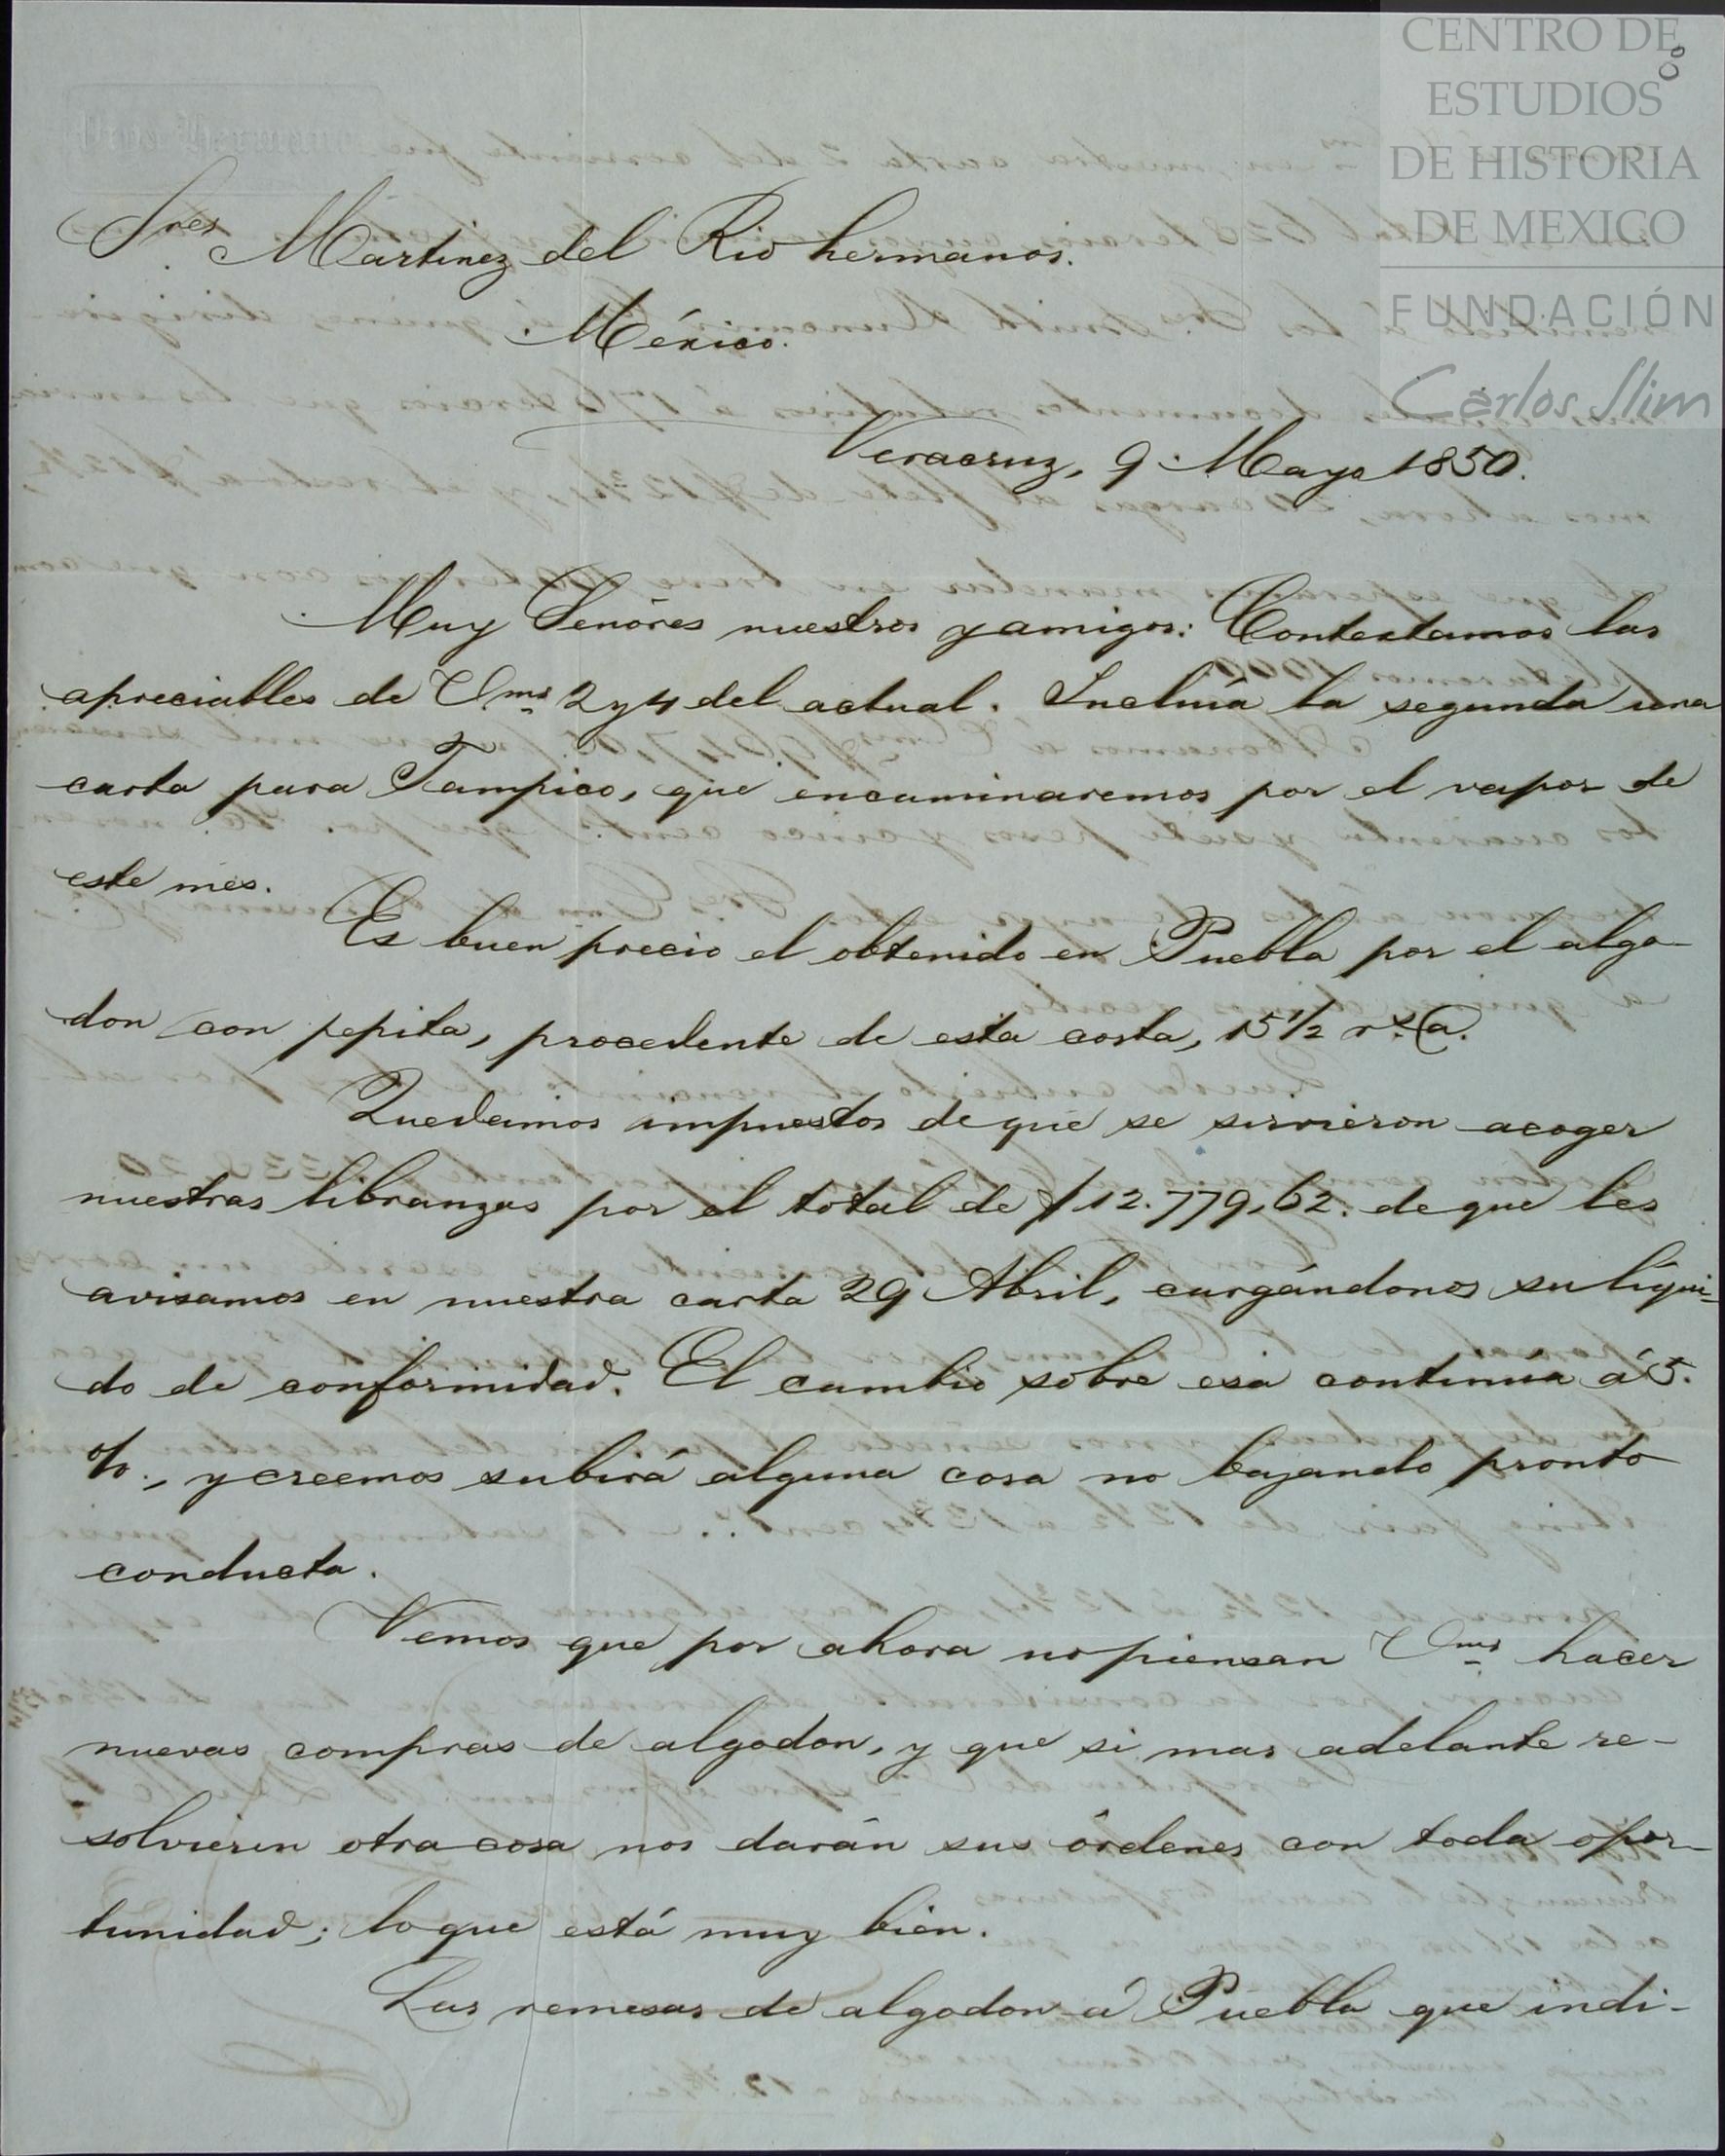 CENTRO DE
ESTUDIOS
DE HISTORIA
DE MEXICO
FUNDACIÓN
Carlos Slim
Sres Martinez del Rio hermanos.
México.
Veracruz, 9 Mayo 1850.
Muy Señores nuestros y amigos: Contestamos las
apreciables de Vms 2 y 4 del actual. Incluía la segunda una
carta para Tampico, que encaminaremos por el vapor de
este mes.
Es buen precio el obtenido en Puebla por el algo-
don con pepita, procedente de esta costa, 15 1/2 rs @.
Quedamos impuestos de que se sirvieron acoger
nuestras libranzas por el total de $12.779,62. de que les
avisamos en nuestra carta 29 Abril, cargándonos su líqui-
do de conformidad. El cambio sobre esa continúa á 5.
%., y creemos subirá alguna cosa no bajando pronto
conducta.
Vemos que por ahora no piensan Vms hacer
nuevas compras de algodon, y que si mas adelante re-
solvieren otra cosa nos darán sus órdenes con toda opor-
tunidad; lo que está muy bien.
Las remesas de algodon á Puebla que indi-